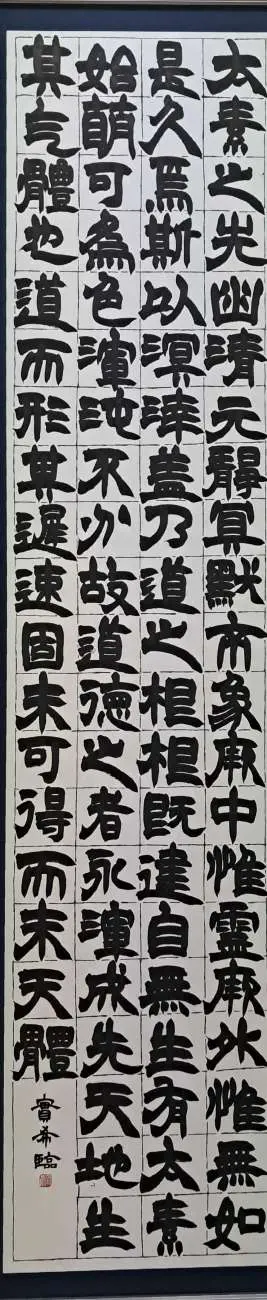 太素之先幽清元冥默象厥中惟靈厥外惟無如
是久焉斯以溟涬盖乃道之根根既建自無生有太素
始萌可為色渾沌不分故道德之者永渾成先天地生
其气體也道而形其遲速固未可得而未天體
實希臨